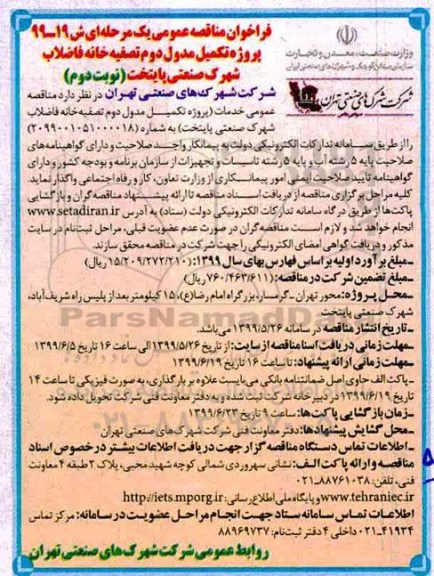 فراخوان مناقصه عمومی یک مرحله‌ای ش ۱۹-۹۹
پروژه تکمیل مدول دوم تصفیه خانه فاضلاب
شهرک صنعتی پایتخت (نوبت دوم)
وزارت صنعت، معدن و تجارت
سازمان صنایع کوچک و شهرکهای صنعتی ایران
شرکت شهرکهای صنعتی تهران
شرکت شهرک‌های صنعتی تهران در نظر دارد مناقصه
عمومی خدمات (پروژه تکمیل مدول دوم تصفیه خانه فاضلاب
شهرک صنعتی پایتخت) به شماره (۲۰۹۹۰۰۱۰۵۱۰۰۰۰۱۸)
را از طریق سامانه تدارکات الکترونیکی دولت به پیمانکار واجد صلاحیت و دارای گواهینامه‌های
صلاحیت پایه ۵ رشته آب و پایه ۵ رشته تاسیسات و تجهیزات از سازمان برنامه و بودجه کشور و دارای
گواهینامه تایید صلاحیت ایمنی امور پیمانکاری از وزارت تعاون، کار و رفاه اجتماعی واگذار نماید.
کلیه مراحل برگزاری مناقصه از دریافت اسناد مناقصه تا ارائه پیشنهاد مناقصه گران و بازگشایی
پاکت‌ها از طریق درگاه سامانه تدارکات الکترونیکی دولت (ستاد) به آدرس www.setadiran.ir
انجام خواهد شد و لازم است مناقصه گران در صورت عدم عضویت قبلی، مراحل ثبت‌نام در سایت
مذکور و دریافت گواهی امضای الکترونیکی را جهت شرکت در مناقصه محقق سازند.
-مبلغ برآورد اولیه بر اساس فهارس بهای سال ۱۳۹۹: (۱۵/۲۰۹/۲۷۲/۲۱۰ ریال)
-مبلغ تضمین شرکت در مناقصه: (۷۶۰/۴۶۳/۶۱۱ ریال)
-محل پروژه: محور تهران - گرمسار، بزرگراه امام رضا(ع)، ۱۵ کیلومتر بعد از پلیس راه شریف‌آباد،
شهرک صنعتی پایتخت
-تاریخ انتشار مناقصه در سامانه ۱۳۹۹/۵/۲۶ می‌باشد.
-مهلت زمانی دریافت اسناد مناقصه از سایت: از تاریخ ۱۳۹۹/۵/۲۶ الی ساعت ۱۶ تاریخ ۱۳۹۹/۶/۵
-مهلت زمانی ارائه پیشنهاد: تا ساعت ۱۶ تاریخ ۱۳۹۹/۶/۱۹
-پاکت الف حاوی اصل ضمانتنامه بانکی می‌بایست علاوه بر بارگذاری، به صورت فیزیکی تا ساعت ۱۴
تاریخ ۱۳۹۹/۶/۱۹ در دبیرخانه شرکت ثبت شده و به دفتر معاونت فنی شرکت تحویل داده شود.
-زمان بازگشایی پاکت‌ها: ساعت ۹ تاریخ ۱۳۹۹/۶/۲۳
-محل گشایش پیشنهادها: دفتر معاونت فنی شرکت شهرک‌های صنعتی تهران
-اطلاعات تماس دستگاه مناقصه گزار جهت دریافت اطلاعات بیشتر در خصوص اسناد
مناقصه و ارائه پاکت الف: نشانی سهروردی شمالی کوچه شهید محبی، پلاک ۲ طبقه ۴ معاونت
فنی، تلفن: ۸۸۷۶۱۰۳۸-۰۲۱
www.tehraniec.ir و پایگاه ملی اطلاع رسانی: http://iets.mporg.ir
اطلاعات تماس سامانه ستاد جهت انجام مراحل عضویت در سامانه: مرکز تماس
۴۱۹۳۴-۰۲۱ داخلی ۴ دفتر ثبت‌نام: ۸۸۹۶۹۷۳۷
روابط عمومی شرکت شهرک‌های صنعتی تهران
ParsNamadData